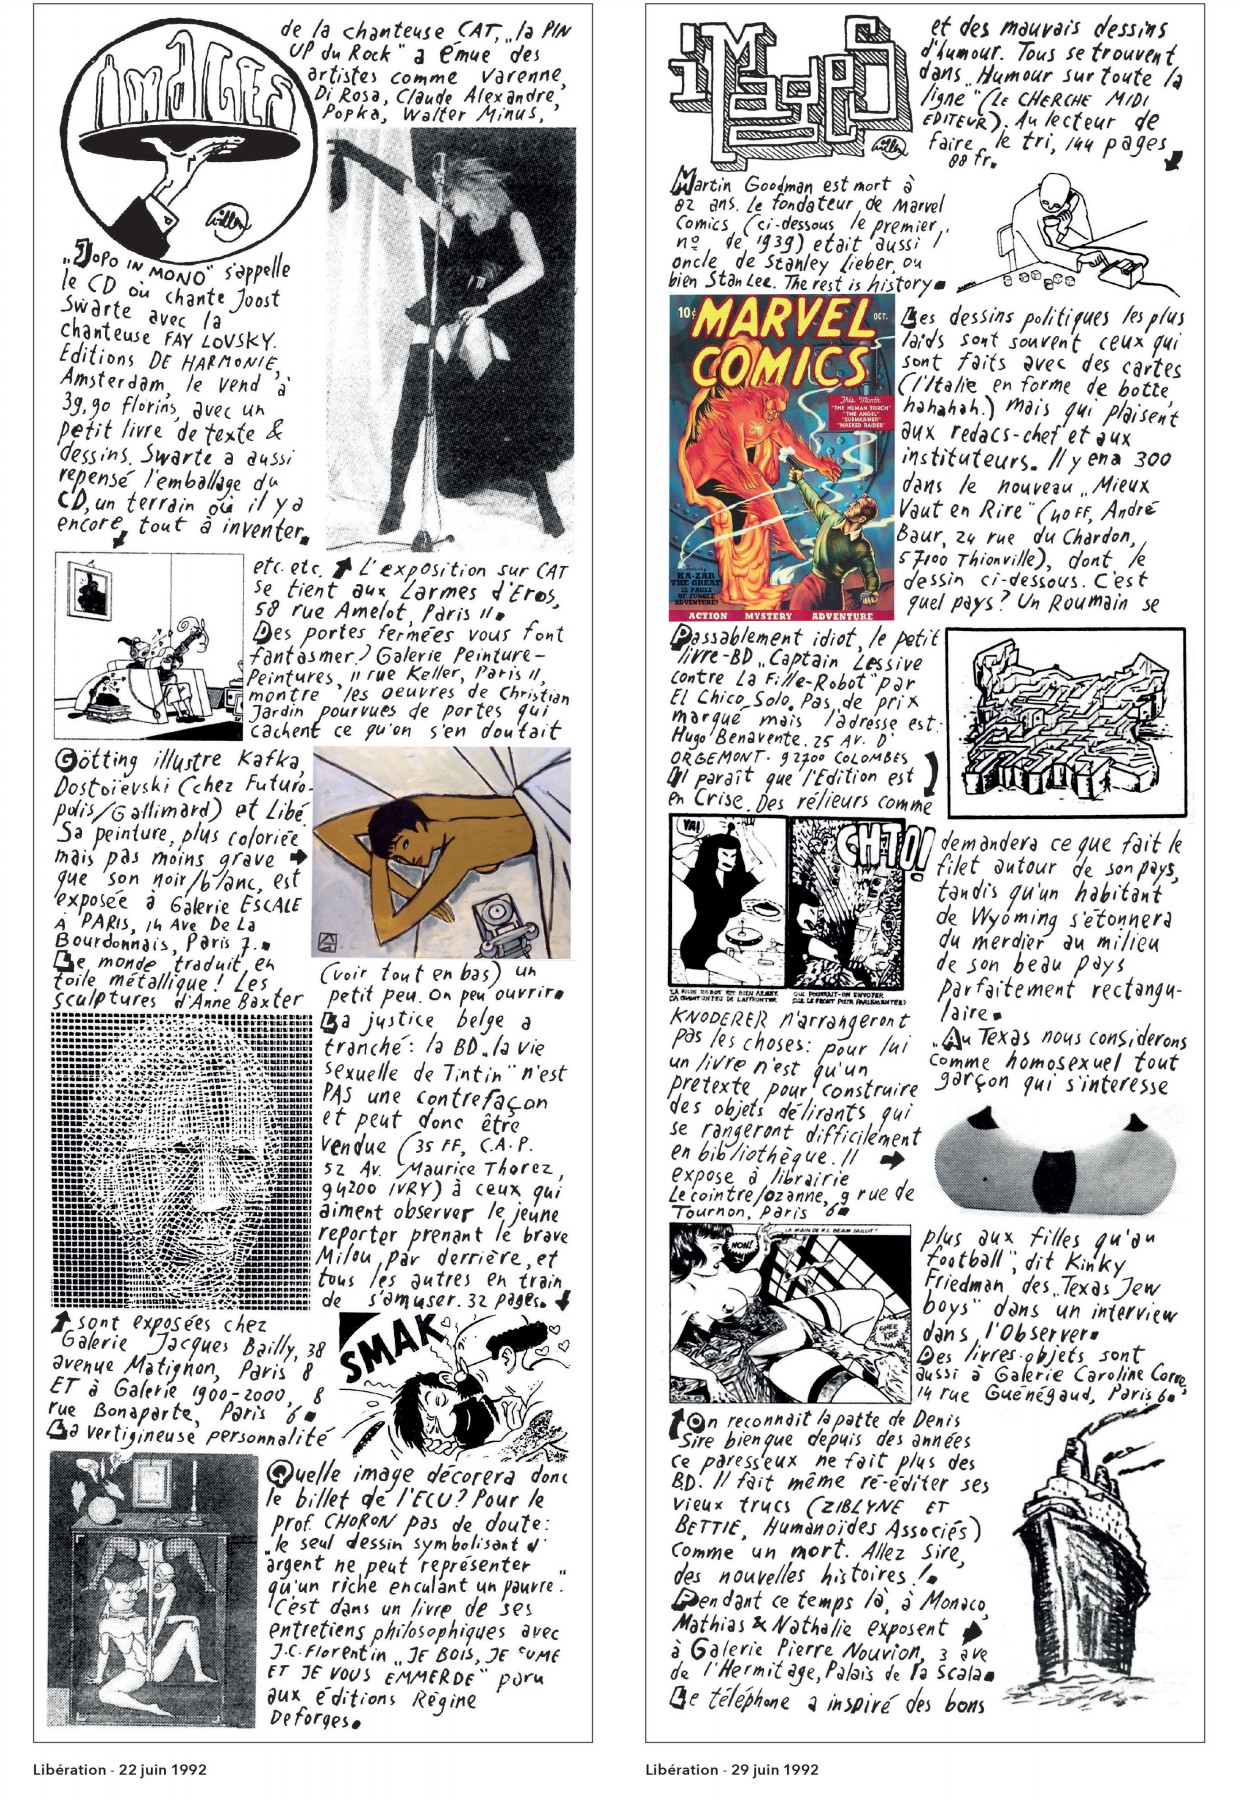 IMAGES
Willem
„JOPO IN MONO" s'appelle
le CD où chante Joost
Swarte avec la
chanteuse FAY LOVSKY.
Editions DE HARMONIE,
Amsterdam, le vend à
39,90 florins, avec un
petit livre de texte &
dessins. Swarte a aussi
repensé l'emballage du
CD, un terrain où il y a
encore tout à inventer.
Götting illustre Kafka,
Dostoïevski (chez Futuro-
polis/Gallimard) et Libé.
Sa peinture, plus coloriée
mais pas moins grave
que son noir/blanc, est
exposée à Galerie ESCALE
A PARIS, 14 Ave De La
Bourdonnais, Paris 7.
Le monde traduit en
toile métallique! Les
sculptures d'Anne Baxter
sont exposées chez
Galerie Jacques Bailly, 38
avenue Matignon, Paris 8
ET à Galerie 1900-2000, 8
rue Bonaparte, Paris 6.
La vertigineuse personnalité
de la chanteuse CAT, „la PIN
UP du Rock" a émue des
artistes comme Varenne,
Di Rosa, Claude Alexandre,
Popka, Walter Minus,
etc. etc. L'exposition sur CAT
se tient aux Larmes d'Eros,
58 rue Amelot, Paris 11.
Des portes fermées vous font
fantasmer? Galerie Peinture-
Peintures, 11 rue Keller, Paris 11,
montre les oeuvres de Christian
Jardin pourvues de portes qui
cachent ce qu'on s'en doutait
(voir tout en bas) un
petit peu. On peu ouvrir.
La justice belge a
tranché: la BD „la vie
sexuelle de Tintin" n'est
PAS une contrefaçon
et peut donc être
vendue (35 FF, C.A.P.
52 Av. Maurice Thorez,
94200 IVRY) à ceux qui
aiment observer le jeune
reporter prenant le brave
Milou par derrière, et
tous les autres en train
de s'amuser. 32 pages.
SMAK
Quelle image décorera donc
le billet de l'ECU? Pour le
prof. CHORON pas de doute:
„le seul dessin symbolisant d'
argent ne peut représenter
qu'un riche enculant un pauvre."
C'est dans un livre de ses
entretiens philosophiques avec
J.C. Florentin „JE BOIS, JE FUME
ET JE VOUS EMMERDE" paru
aux éditions Régine
Deforges.
Libération - 22 juin 1992
IMAGES
Willem
Martin Goodman est mort à
82 ans. Le fondateur de Marvel
Comics (ci-dessous le premier
nº de 1939) etait aussi l'
oncle de Stanley Lieber, ou
bien Stan Lee. The rest is history.
10¢
MARVEL
COMICS
OCT.
This Month
"THE HUMAN TORCH"
"THE ANGEL"
"SUBMARINER"
"MASKED RAIDER"
KA-ZAR
THE GREAT
12 PAGES
OF JUNGLE
ADVENTURE!
ACTION MYSTERY ADVENTURE
Passablement idiot, le petit
livre-BD „Captain Lessive
contre La Fille-Robot" par
El Chico Solo. Pas de prix
marqué mais l'adresse est:
Hugo Benavente. 25 AV. D'
ORGEMONT. 92700 COLOMBES
Il paraît que l'Edition est
en Crise. Des rélieurs comme
YA!
GHTO!
LA FILLE ROBOT EST BIEN ARMEE.
KNODERER n'arrangeront
pas les choses: pour lui
un livre n'est qu'un
pretexte pour construire
des objets délirants qui
se rangeront difficilement
en bibliothèque. Il
expose à librairie
Lecointre/Ozanne, 9 rue de
Tournon, Paris 6.
NON!
On reconnait la patte de Denis
Sire bien que depuis des années
ce paresseux ne fait plus des
BD. Il fait même ré-éditer ses
vieux trucs (ZIBLYNE ET
BETTIE, Humanoïdes Associés)
comme un mort. Allez Sire,
des nouvelles histoires!
Pendant ce temps là, à Monaco,
Mathias & Nathalie exposent
à Galerie Pierre Nouvion, 3 ave
de l'Hermitage, Palais de la Scala.
Le téléphone a inspiré des bons
et des mauvais dessins
d'humour. Tous se trouvent
dans „Humour sur toute la
ligne" (LE CHERCHE MIDI
EDITEUR). Au lecteur de
faire le tri, 144 pages
88 fr.
Les dessins politiques les plus
laids sont souvent ceux qui
sont faits avec des cartes
(l'Italie en forme de botte,
hahahah!) mais qui plaisent
aux redacs-chef et aux
instituteurs. Il y en a 300
dans le nouveau „Mieux
Vaut en Rire" (40 FF, André
Baur, 24 rue du Chardon,
57100 Thionville), dont le
dessin ci-dessous. C'est
quel pays? Un Roumain se
demandera ce que fait le
filet autour de son pays,
tandis qu'un habitant
de Wyoming s'étonnera
du merdier au milieu
de son beau pays
parfaitement rectangu-
laire.
„Au Texas nous considerons
comme homosexuel tout
garçon qui s'interesse
plus aux filles qu'au
football", dit Kinky
Friedman des „Texas Jew
boys" dans un interview
dans l'Observer.
Des livres-objets sont
aussi à Galerie Caroline Corre,
14 rue Guénégaud, Paris 6.
Libération - 29 juin 1992